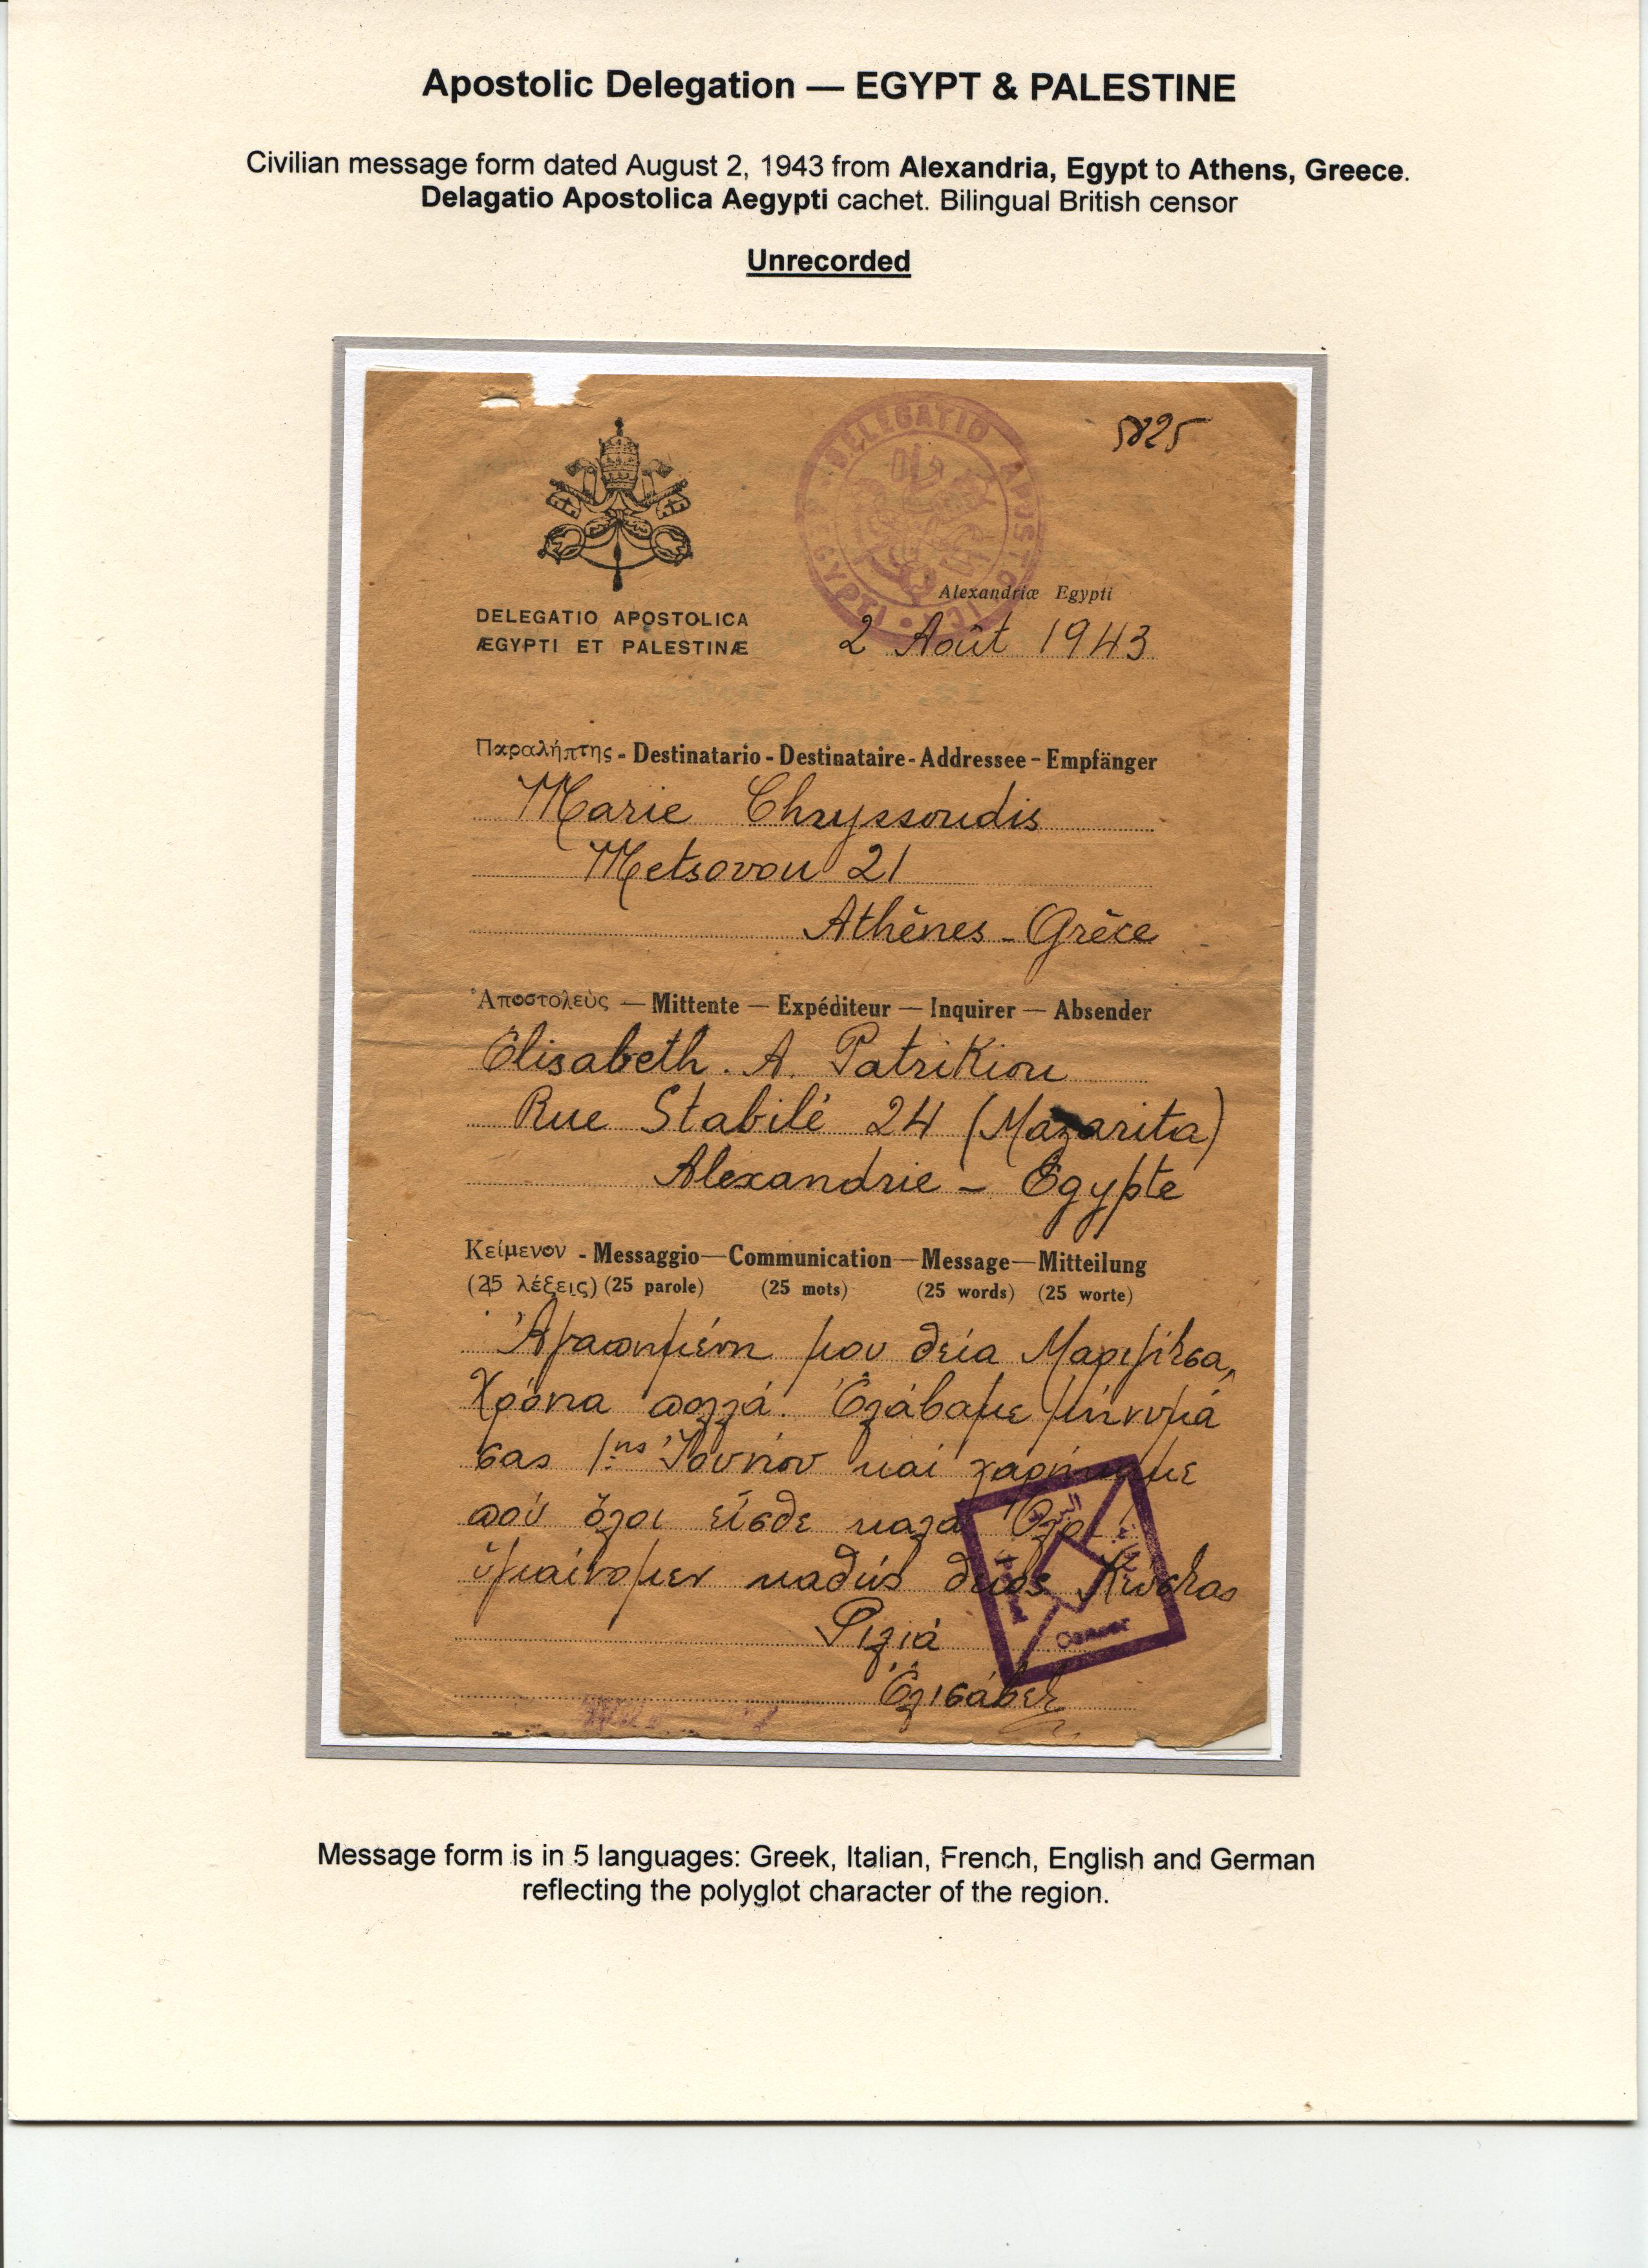 Apostolic Delegation — EGYPT & PALESTINE
Civilian message form dated August 2, 1943 from Alexandria, Egypt to Athens, Greece.
Delagatio Apostolica Aegypti cachet. Bilingual British censor
Unrecorded
DELEGATIO APOSTOLIC ÆGYPTI
5825
Alexandriæ Egypti
DELEGATIO APOSTOLICA
ÆGYPTI ET PALESTINÆ
2 Août 1943
Παραλήπτης - Destinatario - Destinataire - Addressee - Empfänger
Marie Chryssoudis
Metsovou 21
Athènes - Grèce
Ἀποστολεὺς — Mittente — Expéditeur — Inquirer — Absender
Elisabeth. A. Patrikiou
Rue Stabilé 24 (Mazarita)
Alexandrie - Egypte
Κείμενον - Messaggio — Communication — Message — Mitteilung
(25 λέξεις) (25 parole) (25 mots) (25 words) (25 worte)
Ἀγαπημένη μου θεία Μαριγίτσα,
Χρόνια πολλά. Ἐλάβαμε μήνυμά
σας 1ης Ἰουνίου καί χαρήκαμε
πού ὅλοι εἶσθε καλά Ὅλοι
ὑγιαίνομεν καθώς θεῖος Κώστας
Φιλιά
Ἐλισάβετ
Censor
Message form is in 5 languages: Greek, Italian, French, English and German
reflecting the polyglot character of the region.